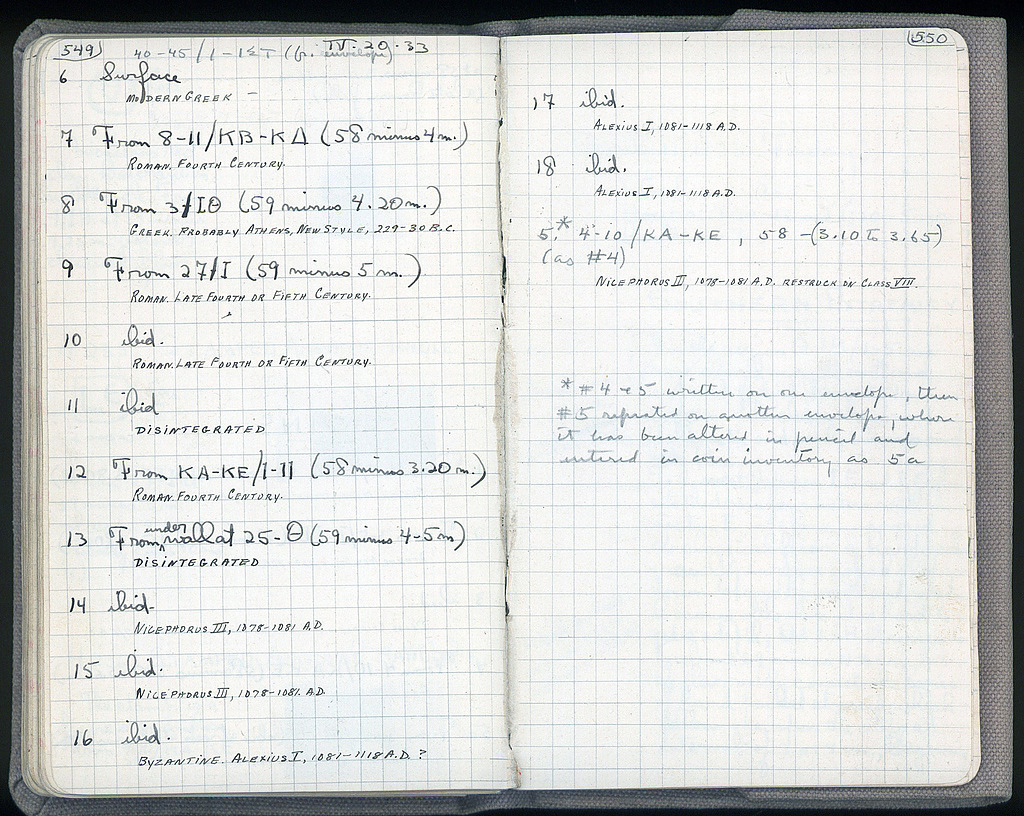 549
IV-20-33
40-45/1-12T (fr. envelope)
6 Surface
MODERN GREEK –
7 From 8-11/KB-KΔ (58 minus 4 m.)
ROMAN. FOURTH CENTURY.
8 From 3/IΘ (59 minus 4.20m.)
GREEK. PROBABLY ATHENS, NEW STYLE, 229-30 B.C.
9 From 27/I (59 minus 5 m.)
ROMAN. LATE FOURTH OR FIFTH CENTURY.
10 ibid.
ROMAN. LATE FOURTH OR FIFTH CENTURY.
11 ibid
DISINTEGRATED
12 From KA-KE/1-11 (58 minus 3.20 m.)
ROMAN. FOURTH CENTURY.
under
13 From ^ wall at 25-Θ (59 minus 4-5 m)
DISINTEGRATED
14 ibid-
NICEPHORUS III, 1078-1081 A.D.
15 ibid.
NICEPHORUS III, 1078-1081. A.D.
16 ibid.
BYZANTINE. ALEXIUS I, 1081-1118 A.D. ?
550
17 ibid.
ALEXIUS I, 1081-1118 A.D.
18 ibid.
ALEXIUS I, 1081-1118 A.D.
5.* 4-10/KA-KE, 58-(3.10 to 3.65)
(as #4)
NICEPHORUS III, 1078-1081 A.D. RESTRUCK ON CLASS VIII.
* #4 & 5 written on one envelope, then
#5 repeated on another envelope, where
it has been altered in pencil and
entered in coin inventory as 5a